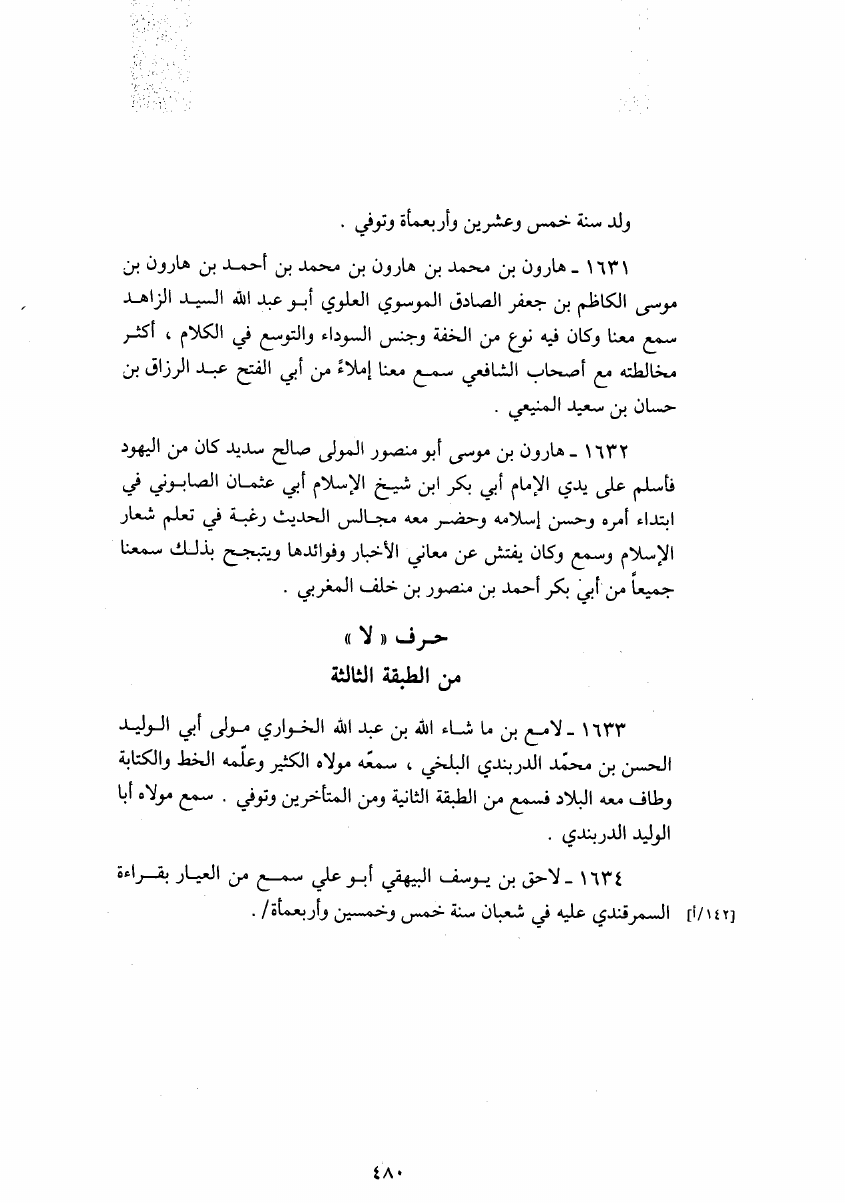 ولد سنة خمس وعشرين وأربعمأة وتوفي .
١٦٣١ ـ هارون بن محمد بن هارون بن محمد بن أحمد بن هارون بن
موسى الكاظم بن جعفر الصادق الموسوي العلوي أبو عبد الله السيد الزاهد
سمع معنا وكان فيه نوع من الخفة وجنس السوداء والتوسع في الكلام ، أكثر
مخالطته مع أصحاب الشافعي سمع معنا إملاءً من أبي الفتح عبد الرزاق بن
حسان بن سعيد المنيعي .
١٦٣٢ ـ هارون بن موسى أبو منصور المولى صالح سديد كان من اليهود
فأسلم على يدي الإمام أبي بكر ابن شيخ الإسلام أبي عثمان الصابوني في
ابتداء أمره وحسن إسلامه وحضر معه مجالس الحديث رغبة في تعلم شعار
الإسلام وسمع وكان يفتش عن معاني الأخبار وفوائدها ويتبجح بذلك سمعنا
جميعاً من أبي بكر أحمد بن منصور بن خلف المغربي .
حرف « لا »
من الطبقة الثالثة
١٦٣٣ ـ لامع بن ما شاء الله بن عبد الله الخواري مولى أبي الوليد
الحسن بن محمّد الدربندي البلخي ، سمعّه مولاه الكثير وعلّمه الخط والكتابة
وطاف معه البلاد فسمع من الطبقة الثانية ومن المتأخرين وتوفي . سمع مولاه أبا
الوليد الدربندي .
١٦٣٤ ـ لاحق بن يوسف البيهقي أبو علي سمع من العيار بقراءة
[١٤٢/أ] السمرقندي عليه في شعبان سنة خمس وخمسين وأربعمأة/ .
٤٨٠